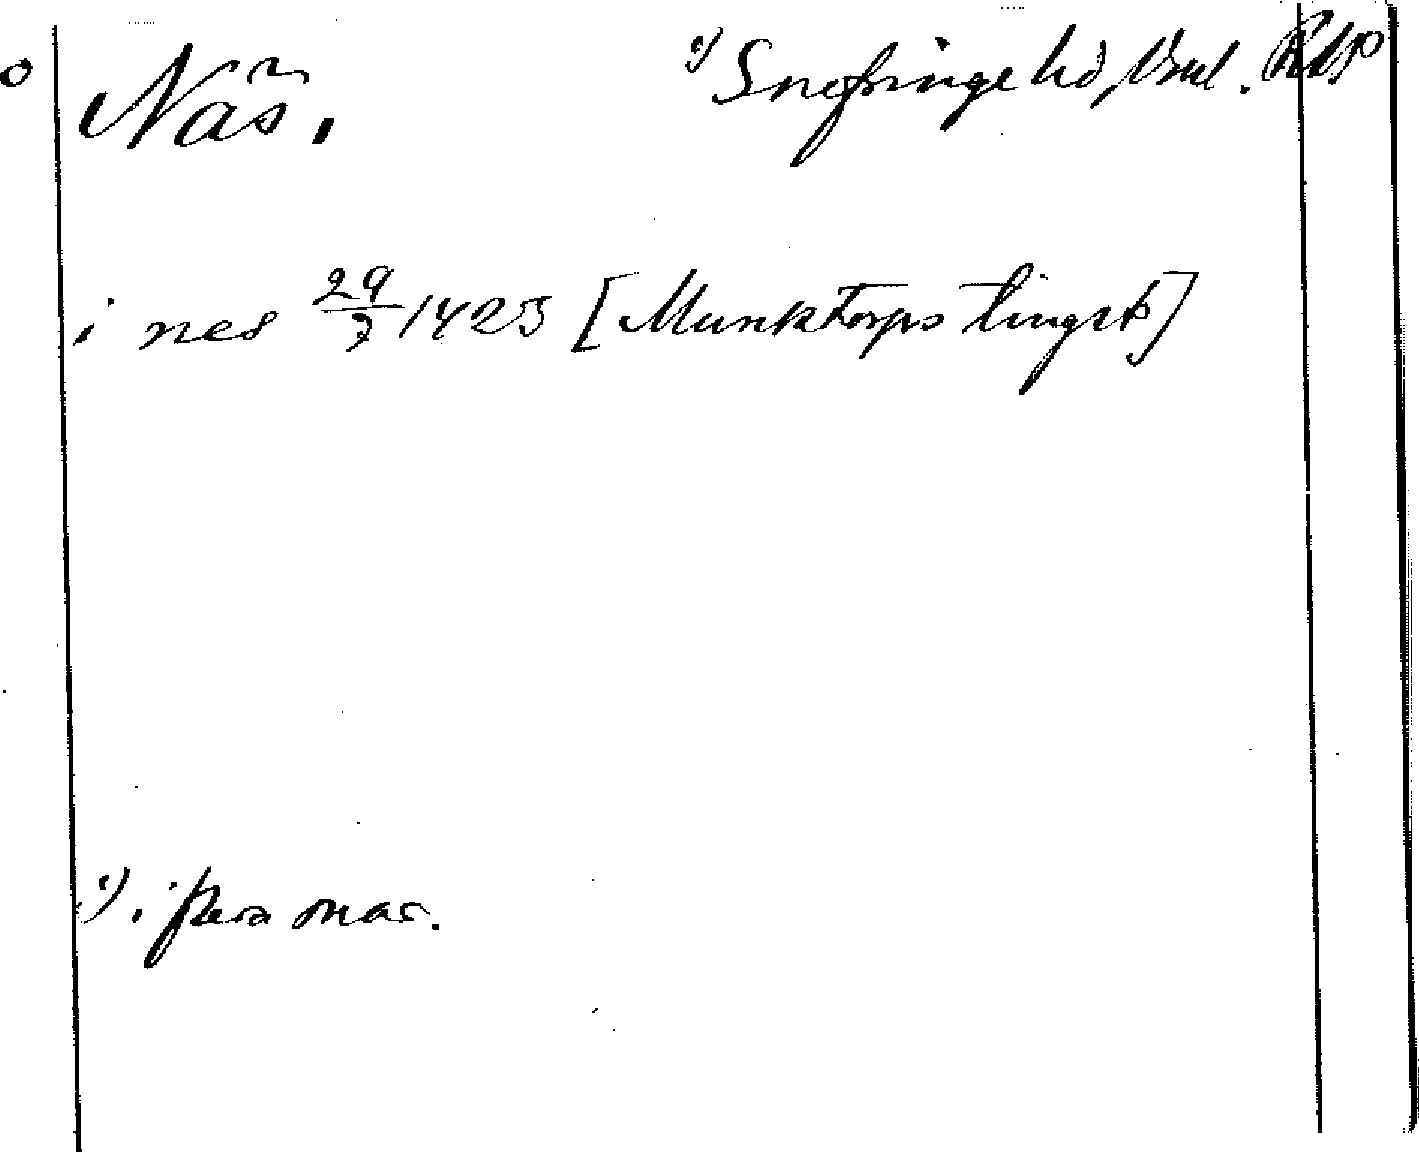 Näs. ¹) Snefringe hd, Vsml. RAP
i nes 29/7 1425 [Munktorps tingst]
¹). i pers mar.